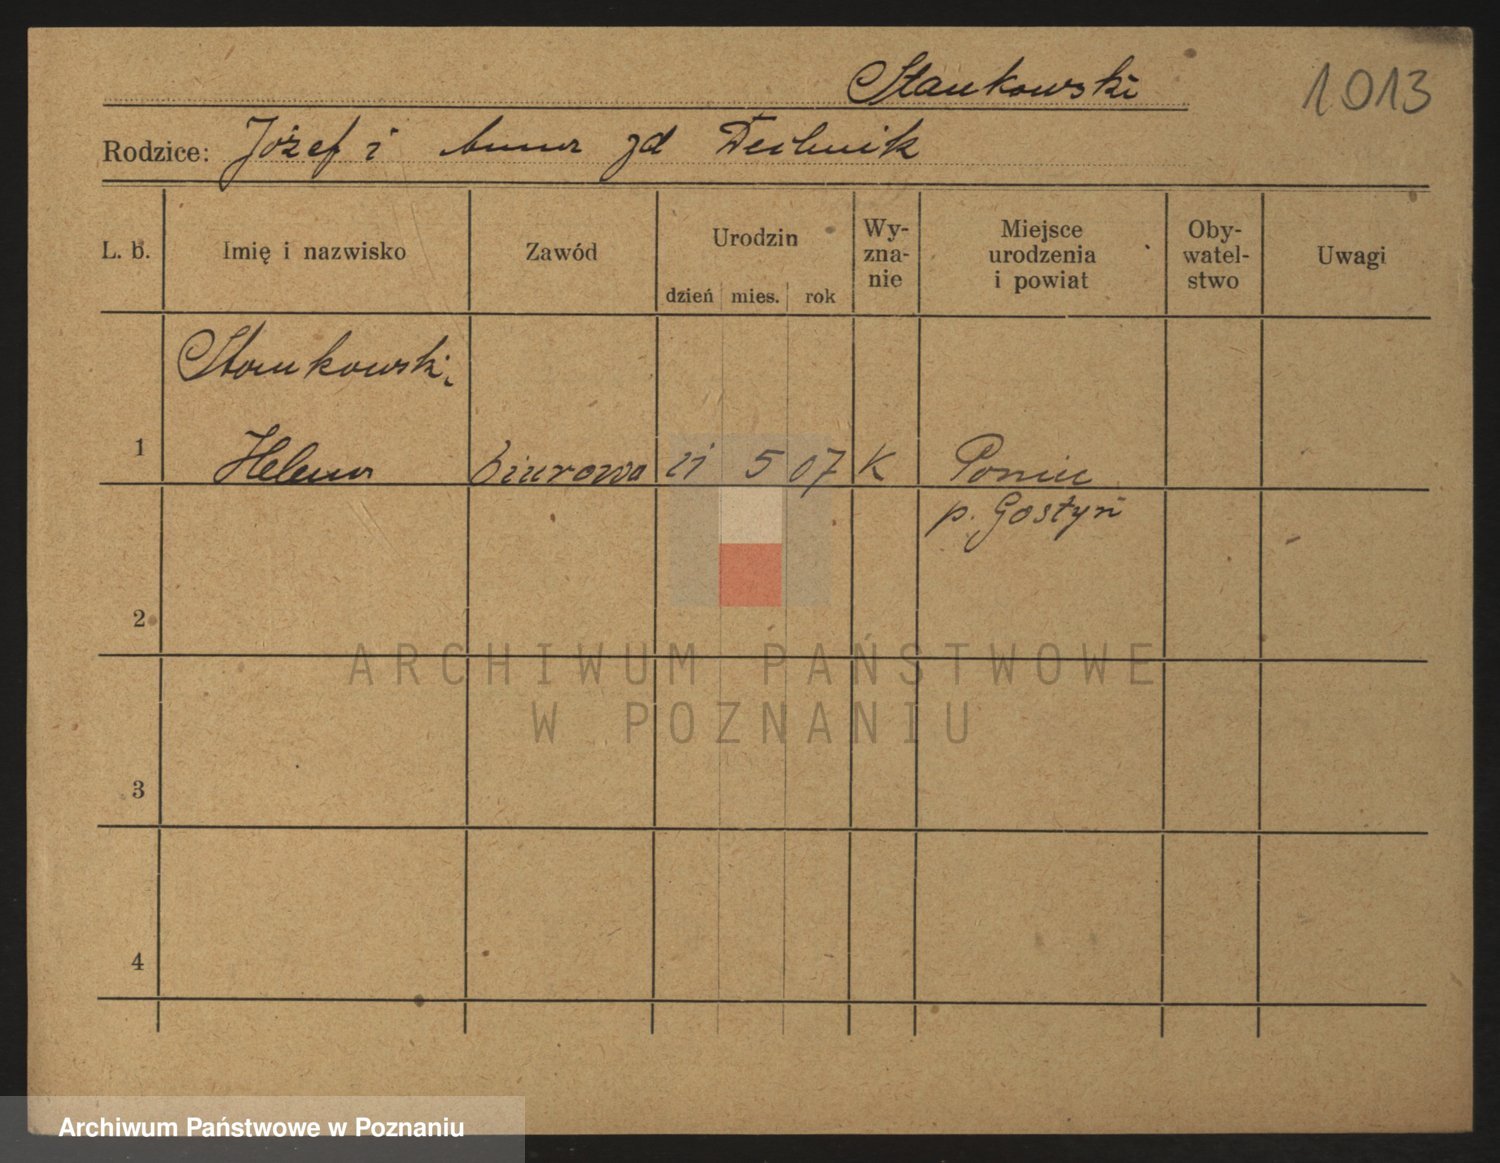 Stankowski
1013
Rodzice: Józef i Anna zd
L. b.
Imię i nazwisko
Zawód
Urodzin
dzień mies. rok
Wy-
zna-
nie
Miejsce
urodzenia
i powiat
Oby-
watel-
stwo
Uwagi
Stankowski
1 Helena biurowa 11 5 07 K Poniec
p. Gostyń
2
ARCHIWUM PAŃSTWOWE
W POZNANIU
3
4
Archiwum Państwowe w Poznaniu